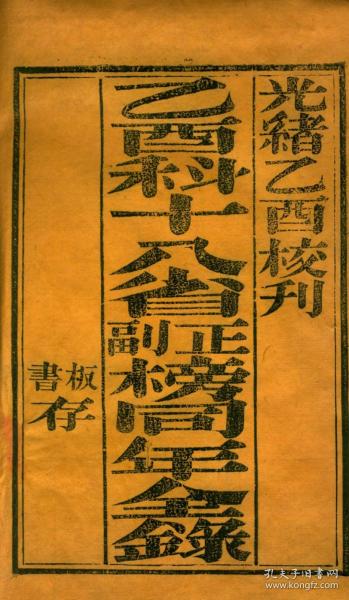 光緒乙酉校刊
乙酉科十八省正副榜同年全錄
板存書
孔夫子旧书网